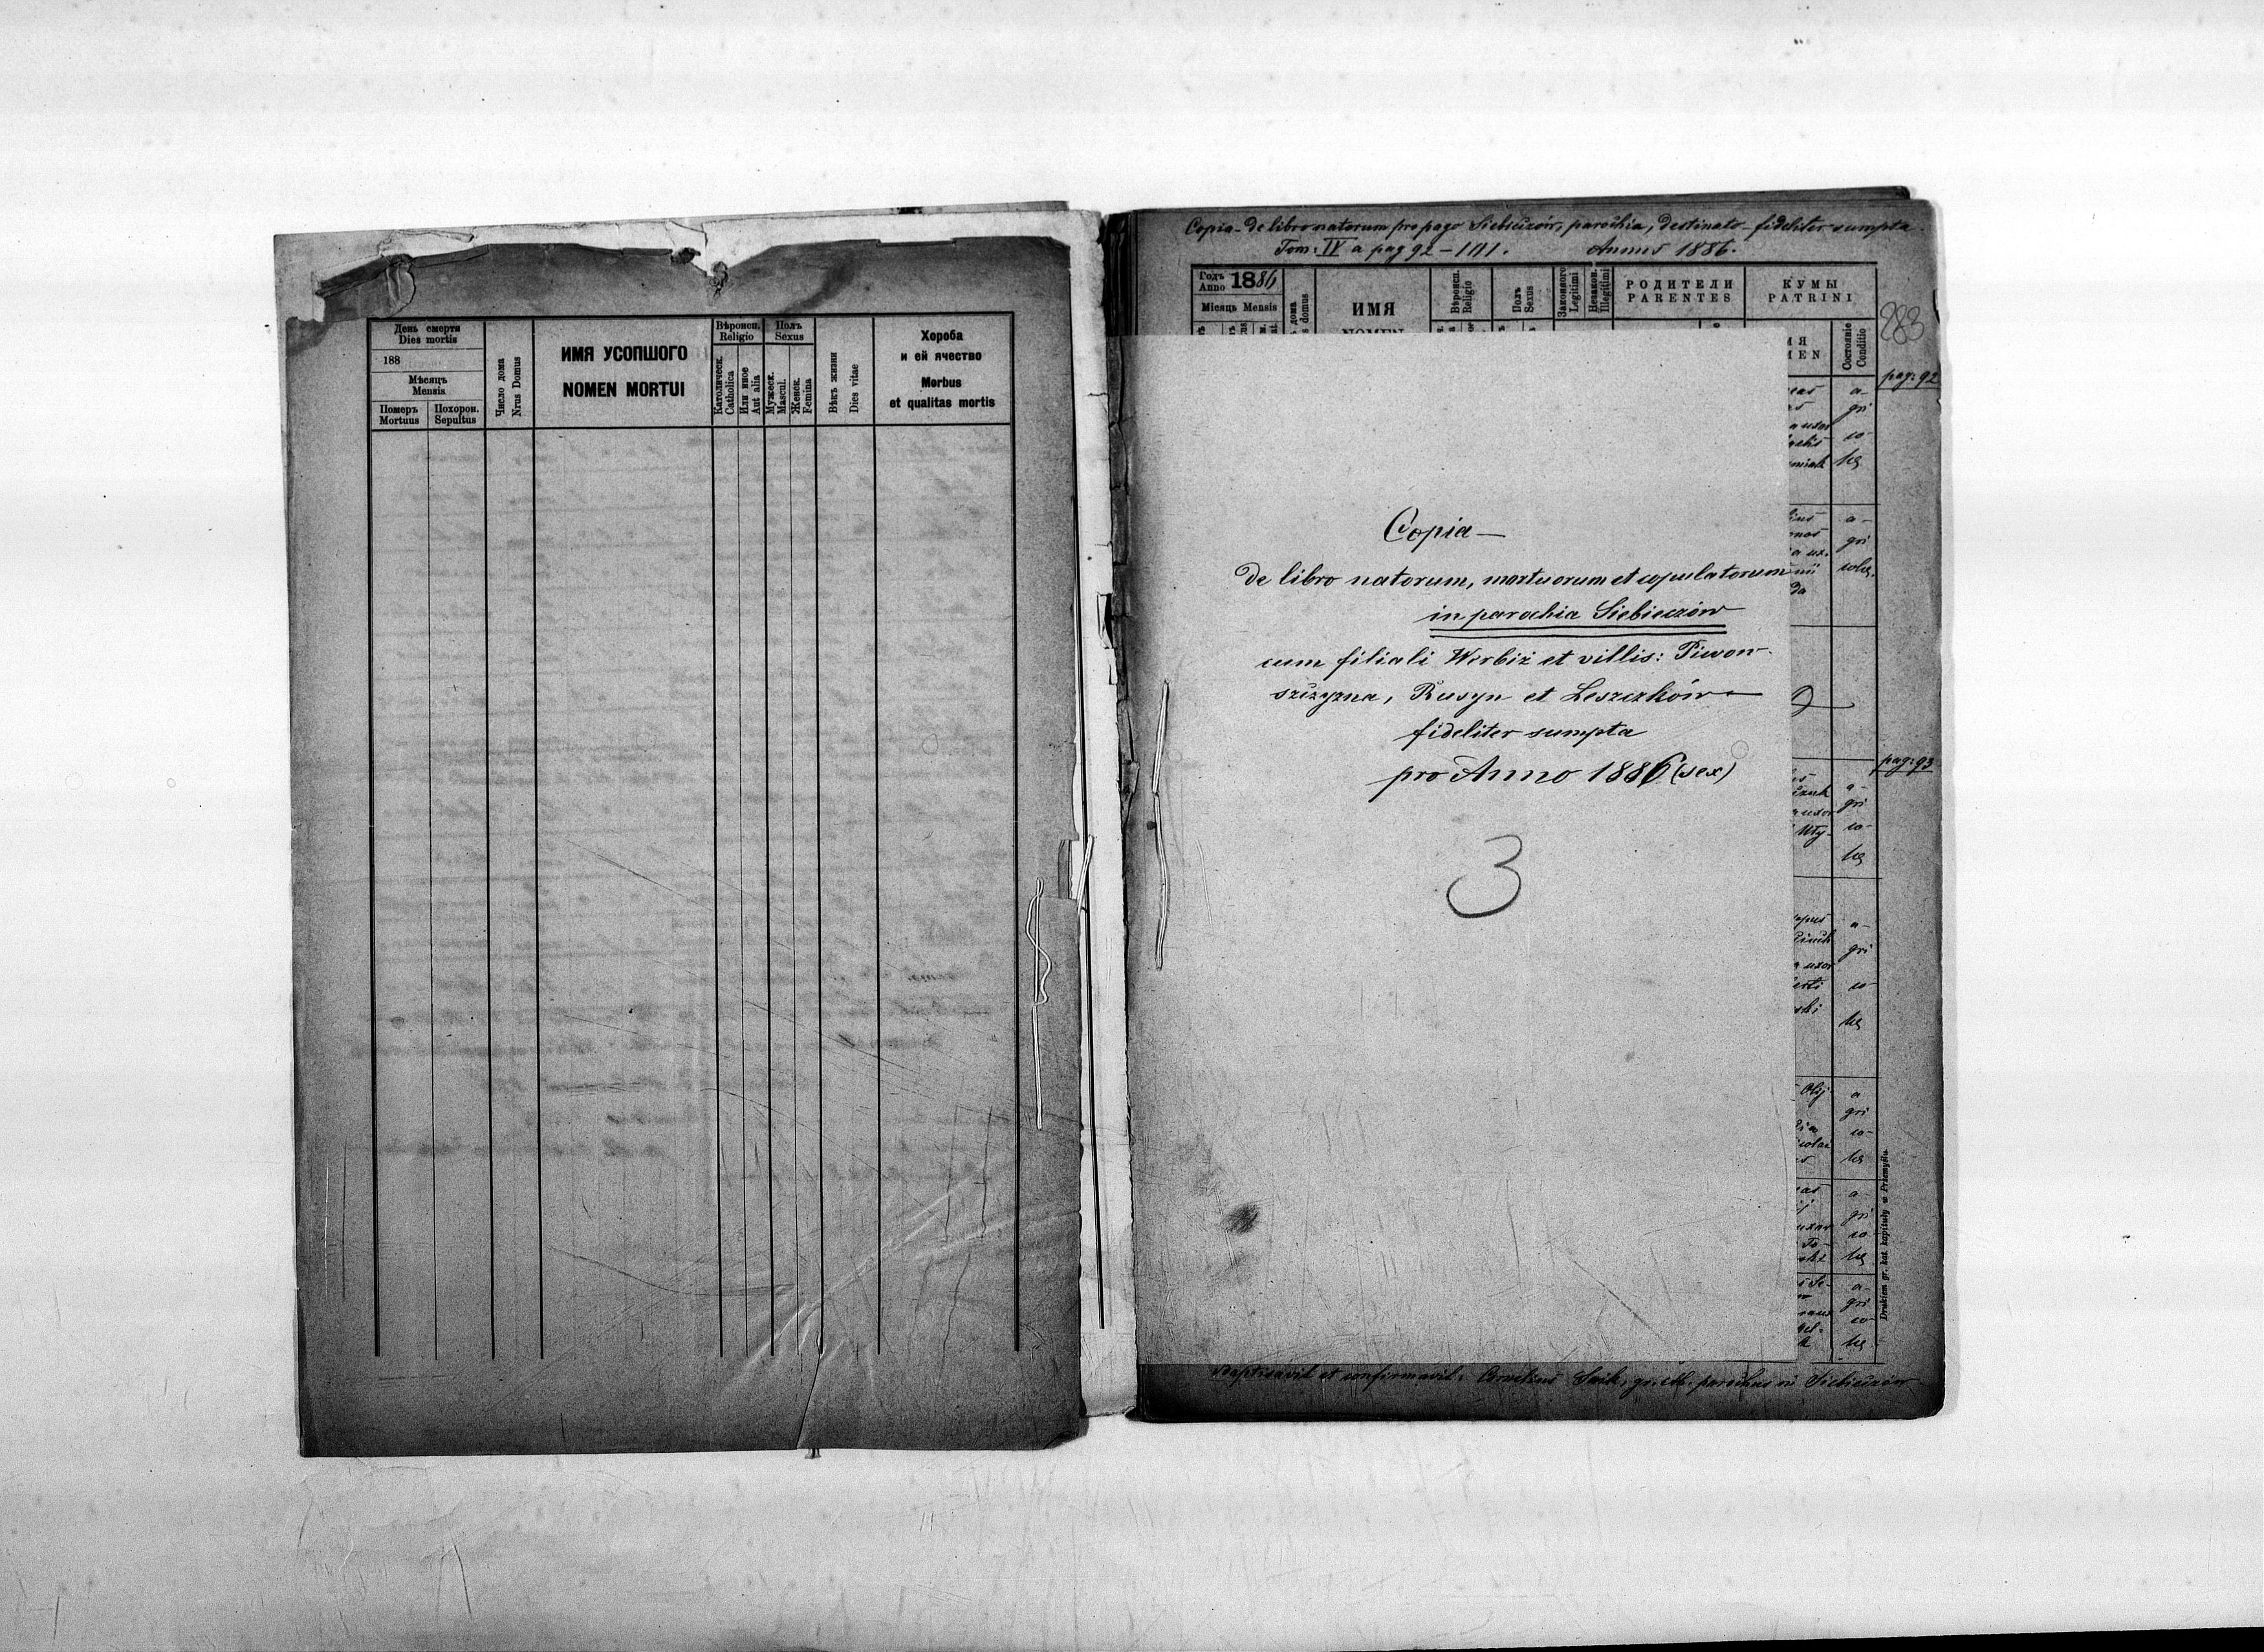 День смерти
Dies mortis
188
Мѣсяць
Mensis
Померъ
Mortuus
Похорон.
Sepultus
Число дома
Nrus Domus
ИМЯ УСОПШОГО
NOMEN MORTUI
Вѣроисп.
Religio
Католическ.
Catholica
Или иное
Aut alia
Полъ
Sexus
Мужеск.
Mascul.
Женск.
Femina
Вѣкъ жизни
Dies vitae
Хороба
и ей ячество
Morbus
et qualitas mortis
Copia de libro natorum pro pago Siebieczów, parochia, destinato fideliter sumpta.
Tom: IV a pag 92 – 101. Annus 1886.
Годъ
Anno 1886
Місяць Mensis
дома
domus
ИМЯ
NOMEN
Вѣроисп.
Religio
Полъ
Sexus
Законного
Legitimi
Незакон.
Illegitimi
РОДИТЕЛИ
PARENTES
КУМЫ
PATRINI
Состояніе
Conditio
283
pag: 92
a-
gri
co-
lae
a-
gri
colae.
pag: 93
a-
gri
co-
lae
a-
gri
co-
lae
a
gri
co-
lae
a-
gri
co-
lae
a-
gri
co-
lae
Copia —
de libro natorum, mortuorum et copulatorum
in parochia Siebieczów
cum filiali Werbiż et villis: Piwon-
szczyzna, Rusyn et Leszczków —
fideliter sumpta
pro Anno 1886 (sex)
3
Drukiem gr. kat. kapituły w Przemyślu.
Baptisavit et confirmavit: Cornelius gr. cth. parochus in Siebieczów